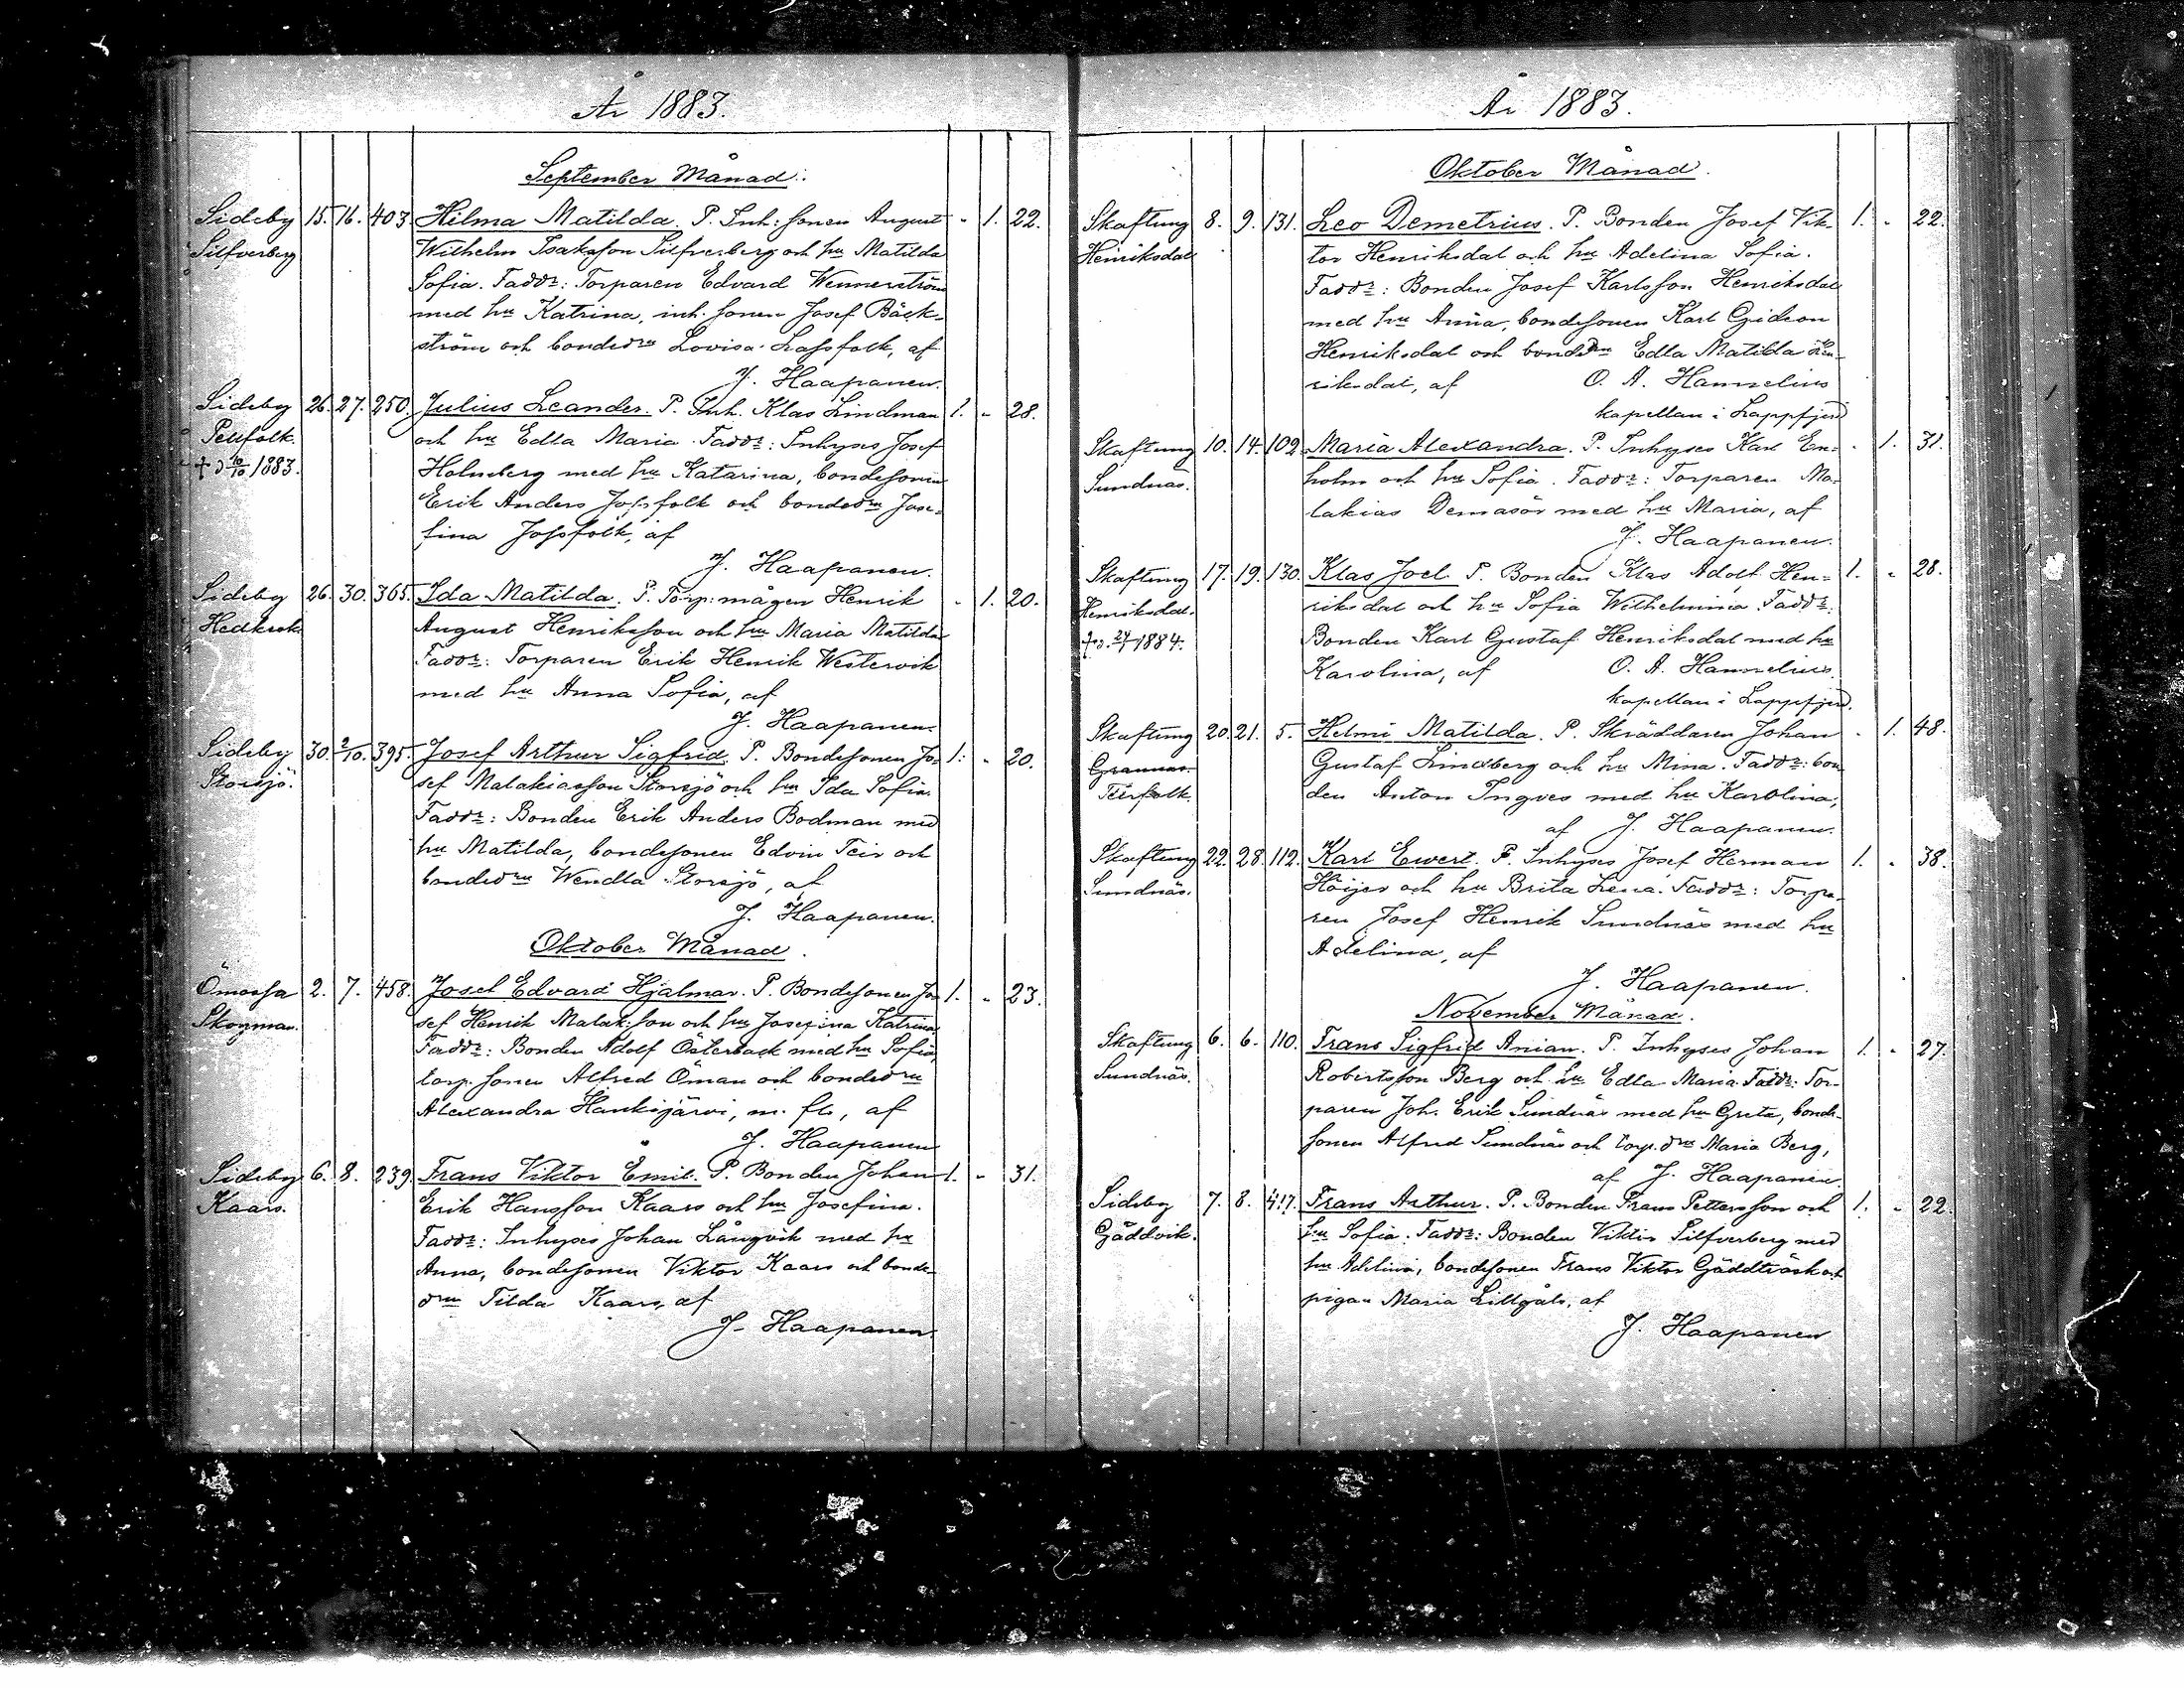 År 1883.
September Månad.
Sideby 15. 16. 403. Hilma Matilda. P. Inh: sonen August - 1. 22.
Silfverberg Wilhelm Isaksson Silfverberg och hu Matilda
Sofia. Faddr: Torparen Edvard Wennerström
med hu Katrina, inh. sonen Josef Bäck-
ström och bondedrn Lovisa Lassfolk, af
J. Haapanen.
Sideby 26. 27. 250. Julius Leander. P. Inh. Klas Lindman 1. - 28.
och hu Edla Maria. Faddr: Inhyses Josef
† d 10/10 1883. Holmberg med hu Katarina, bondesonen
Erik Anders Jossfolk och bondedrn Jose-
fina Jossfolk, af
J. Haapanen.
Sideby 26. 30. 365. Ida Matilda. P. Torp: mågen Henrik - 1. 20.
Hedkrok August Henriksson och hu Maria Matilda
Faddr: Torparen Erik Henrik Westervik
med hu Anna Sofia, af
J. Haapanen.
Sideby 30. 2/10. 395. Josef Arthur Sigfrid. P. Bondesonen Jo- 1. - 20.
Storsjö. sef Malakiasson Storsjö och hu Ida Sofia.
Faddr: Bonden Erik Anders Bodman med
hu Matilda, bondesonen Edvin Teir och
bondedrn Wendla Storsjö, af
J. Haapanen.
Oktober Månad.
Ömossa 2. 7. 458. Josef Edvard Hjalmar. P. Bondesonen Jo- 1. - 23.
Skogman. sef Henrik Malak: son och hu Josefina Katrina
Faddr: Bonden Adolf Österback med hu Sofia
torp. sonen Alfred Öman och bondedrn
Alexandra Hankijärvi, m. fl., af
J. Haapanen
Sideby 6. 8. 239. Frans Viktor Emil. P. Bonden Johan 1. - 31.
Kaars. Erik Hansson Kaars och hu Josefina.
Faddr: Inhyses Johan Långvik med hu
Anna, bondesonen Viktor Kaars och bonde-
drn Tilda Kaars, af
J. Haapanen
År 1883.
Oktober Månad.
Skaftung 8. 9. 131. Leo Demetrius. P. Bonden Josef Vik- 1. - 22.
Henriksdal tor Henriksdal och hu Adelina Sofia.
Faddr: Bonden Josef Karlsson Henriksdal
med hu Anna, bondesonen Karl Gideon
Henriksdal och bondedrn Edla Matilda Hen-
riksdal, af O. A. Hannelius
kapellan i Lappfjerd
Skaftung 10. 14. 102. Maria Alexandra. P. Inhyses Karl En- - 1. 31.
Sundnäs. holm och hu Sofia. Faddr: Torparen Ma-
lakias Demasör med hu Maria, af
J. Haapanen.
Skaftung 17. 19. 130. Klas Joel. P. Bonden Klas Adolf Hen- 1. - 28.
Henriksdal. riksdal och hu Sofia Wilhelmina. Faddr:
1884. Bonden Karl Gustaf Henriksdal med hu
Karolina, af O. A. Hannelius.
kapellan i Lappfjerd.
Skaftung 20. 21. 5. Helmi Matilda. P. Skräddaren Johan - 1. 48.
Grannas. Gustaf Lindberg och hu Mina. Faddr: bon-
Teirfolk. den Anton Ingves med hu Karolina,
af J. Haapanen.
Skaftung 22. 28. 112. Karl Ewert. P. Inhyses Josef Herman 1. - 38.
Sundnäs. Höijer och hu Brita Lena. Faddr: Torpa-
ren Josef Henrik Sundnäs med hu
Adelina, af
J. Haapanen.
November Månad.
Skaftung 6. 6. 110. Frans Sigfrid Anian. P. Inhyses Johan 1. - 27.
Sundnäs. Robertsson Berg och hu Edla Maria. Faddr: Tor-
paren Joh. Erik Sundnäs med hu Greta, bonde-
sonen Alfred Sundnäs och torp. drn Maria Berg,
af J. Haapanen.
Sideby 7. 8. 417. Frans Arthur. P. Bonden Frans Pettersson och 1. - 22.
Gäddvik. hu Sofia. Faddr: Bonden Viktor Silfverberg med
hu Adelina, bondesonen Frans Viktor Gäddträsk och
pigan Maria Lillgäls, af
J. Haapanen